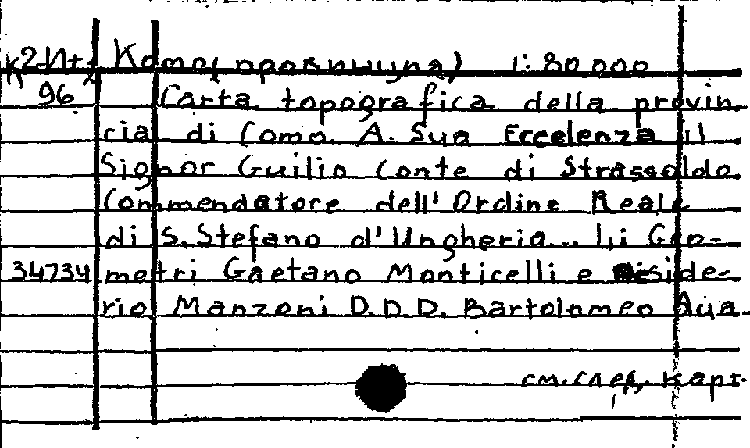 К2-Ит/96 Комо (провинция) 1:80.000
Carta topografica della provin
cia di Como A. Sua Eccelenza il
Signor Guilio Conte di Strassoldo
Commendatore dell'Ordine Reale
di S. Stefano d'Ungheria... Li Geo-
34734 metri Gaetano Monticelli e Deside-
rio Manzoni D.D.D. Bartolomeo Aua
см. след. карт.